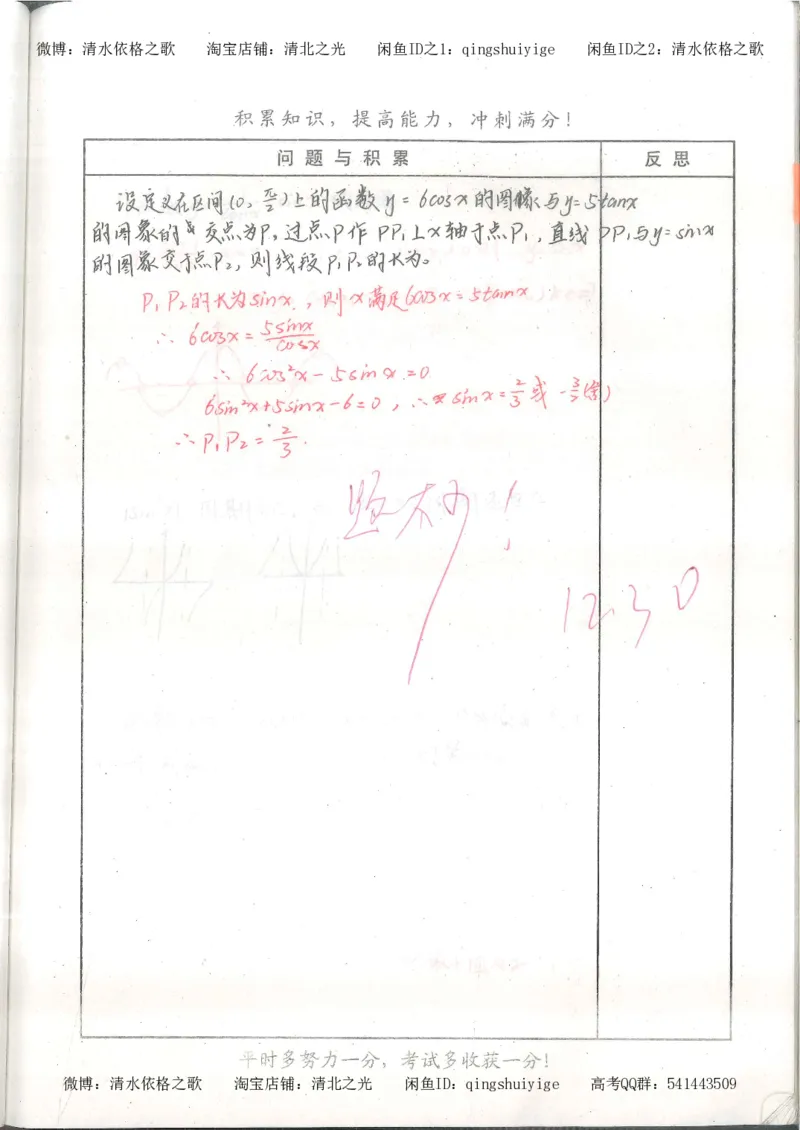 微博：清水依格之歌 淘宝店铺：清北之光 闲鱼ID之1：qingshuiyige 闲鱼ID之2：清水依格之歌
积累知识，提高能力，冲刺满分！
问题与积累 反思
设定义在区间(0, π/2)上的函数 y = 6cosx的图像与y=5tanx
的图象的交点为P,过点P作 PP₁⊥x轴于点P₁,直线PP₁与y=sinx
的图象交于点P₂,则线段P₁P₂的长为。
P₁P₂的长为sinx,则x满足6cosx=5tanx
∴ 6cosx = 5sinx/cosx
∴ 6cos²x-5sinx=0
6sin²x+5sinx-6=0, ∴ sinx=2/3或-3/2(舍)
∴P₁P₂=2/3.
12.30
平时多努力一分，考试多收获一分！
微博：清水依格之歌 淘宝店铺：清北之光 闲鱼ID：qingshuiyige 高考QQ群：541443509